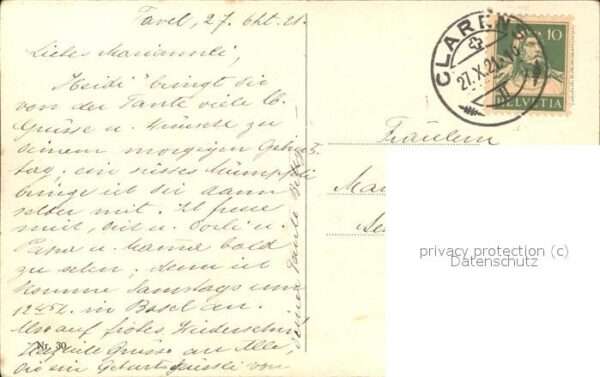 Tavel, 27. Okt. 21.
Liebes Mariannli,
"Heidi" bringt dir
von der Tante viele lb.
Grüsse u. Wünsche zu
deinem morgigen Geburts-
tag; ein süsses Mümpfeli
bringe ich dir dann
selber mit. Ich freue
mich, dich u. Dorli u.
Papa u. Mama bald
zu sehen; denn ich
komme Samstags um
12 in Basel an.
Also auf frohes Wiedersehen!
Herzliche Grüsse an Alle,
die ein Geburtstagsküssli von
deiner Tante
Nr. 30
CLARENS
27.X.21
10
HELVETIA
Fräulein
privacy protection (c)
Datenschutz